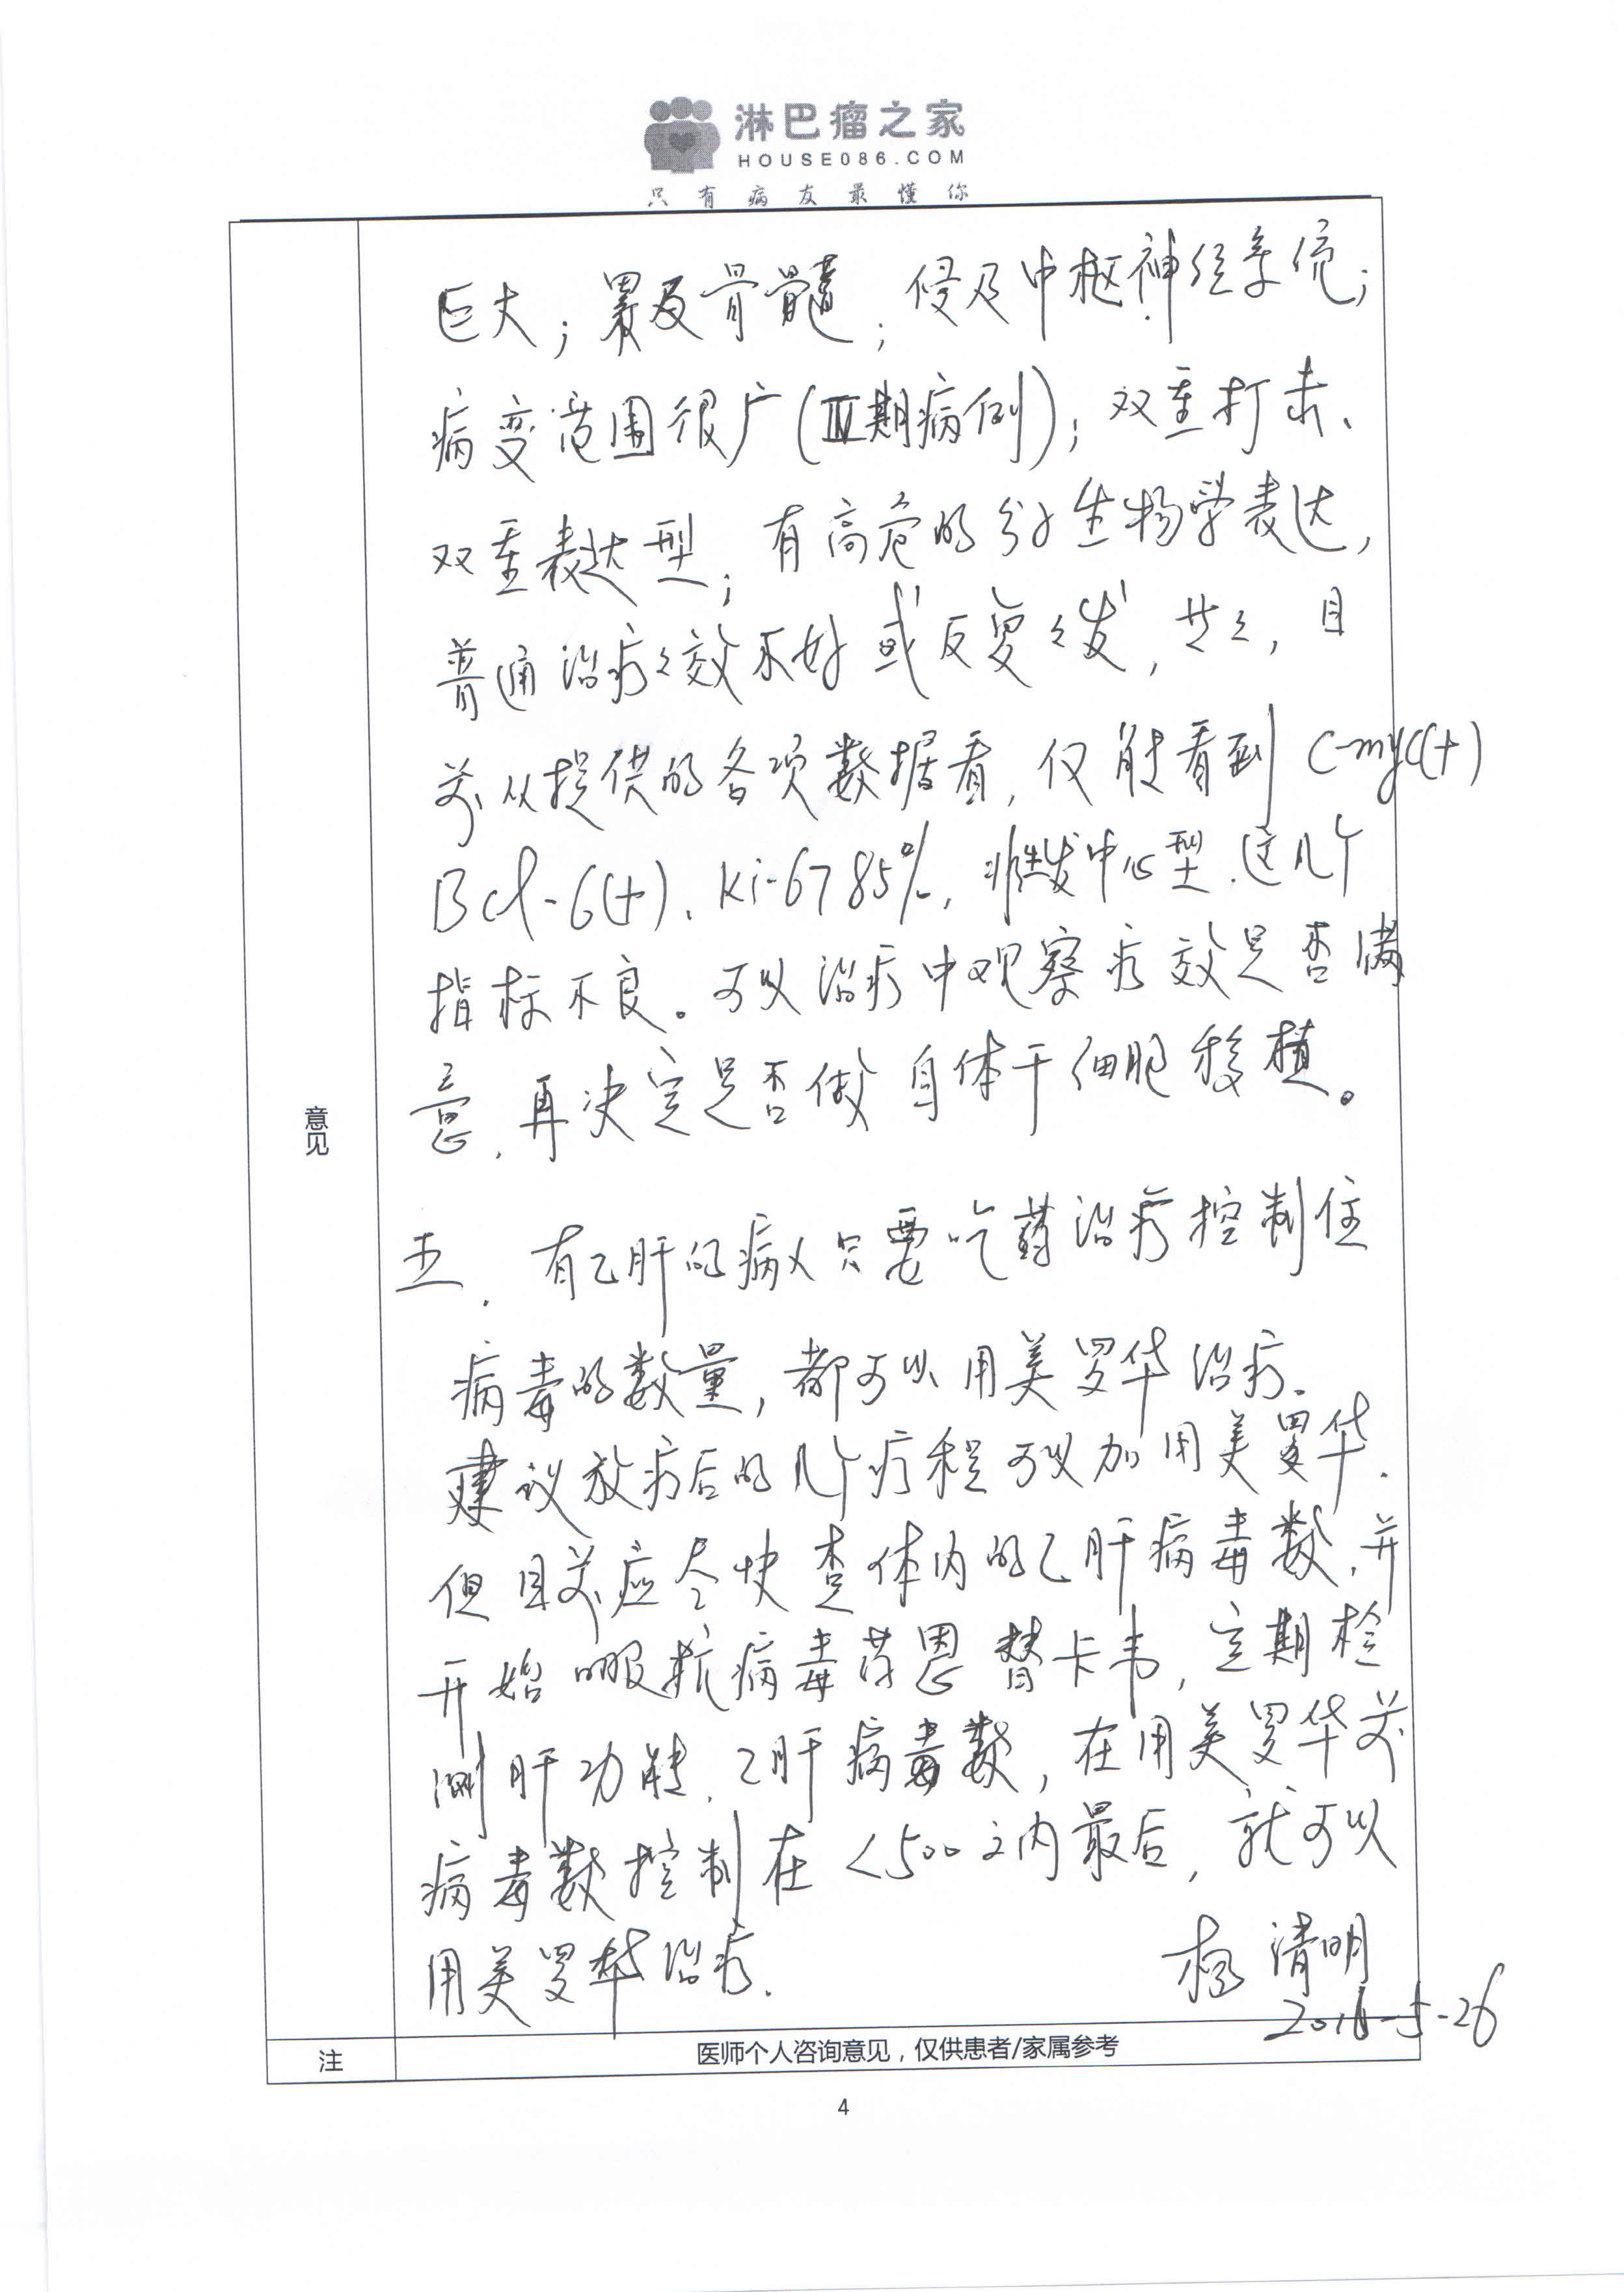 淋巴瘤之家
HOUSE086.COM
只有病友最懂你
巨大；累及骨髓；侵及中枢神经系统；
病变范围很广(Ⅳ期病例)；双重打击、
双重表达型；有高危的分子生物学表达，
普通治疗疗效不好或反复复发，等等，目
前从提供的各项数据看，仅能看到C-myc(+)
Bcl-6(+)、Ki-67 85%，非生发中心型.这几个
指标不良。可以治疗中观察疗效是否满
意，再决定是否做自体干细胞移植。
意见
五. 有乙肝的病人只要吃药治疗控制住
病毒的数量，都可以用美罗华治疗.
建议放疗后的几个疗程可以加用美罗华.
但目前应尽快查体内的乙肝病毒数，并
开始口服抗病毒药恩替卡韦，定期检
测肝功能、乙肝病毒数，在用美罗华前
病毒数控制在<500之内最后，就可以
用美罗华治疗.
清明
2016-5-26
注
医师个人咨询意见，仅供患者/家属参考
4